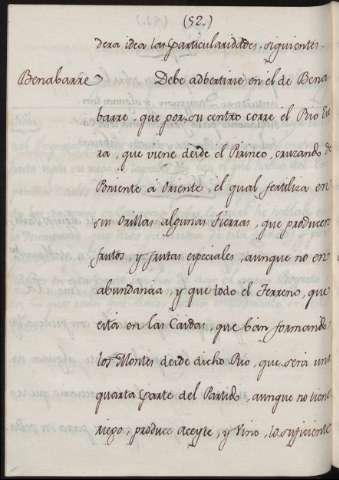 (52.)
dera idea las particularidades siguientes.
Benabarre Debe adbertirse en el de Bena
barre que por su centro corre el Rio Es
ra, que viene desde el Pirineo, cruzando de
Poniente á Oriente el qual fertiliza en
sus Orillas algunas tierras, que producen
frutos, y frutas especiales, aunque no en
abundancia, y que todo el Terreno, que
está en las Caidas, que ban formando
los Montes desde dicho Rio, que será una
quarta parte del Partido, aunque no tiene
riego, produce Aceyte, y Vino, lo suficiente